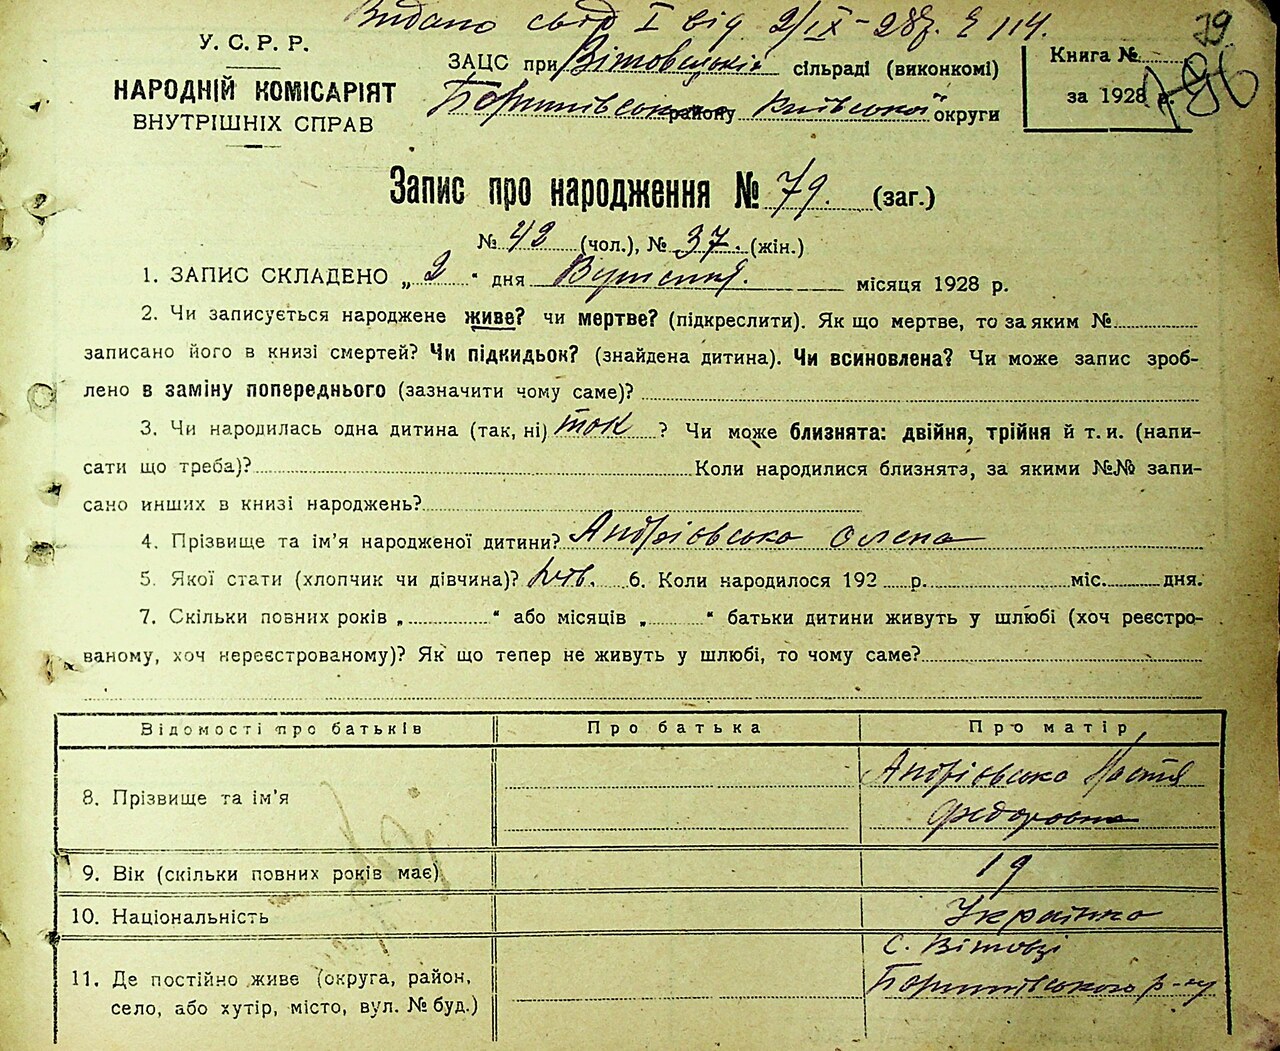 Видано свід I від 2/IX-28р. № 114.
79
У. С. Р. Р.
НАРОДНІЙ КОМІСАРІЯТ
ВНУТРІШНІХ СПРАВ
ЗАЦС при Вітовецькій сільраді (виконкомі)
району Київської округи
Книга №
за 1928 р.
Запис про народження № 79. (заг.)
№ 42 (чол.), № 37. (жін.)
1. ЗАПИС СКЛАДЕНО „ 2 “ дня Вересня. місяця 1928 р.
2. Чи записується народжене живе? чи мертве? (підкреслити). Як що мертве, то за яким №
записано його в книзі смертей? Чи підкидьок? (знайдена дитина). Чи всиновлена? Чи може запис зроб-
лено в заміну попереднього (зазначити чому саме)?
3. Чи народилась одна дитина (так, ні) так ? Чи може близнята: двійня, трійня й т. и. (напи-
сати що треба)? Коли народилися близнята, за якими №№ запи-
сано инших в книзі народжень?
4. Прізвище та ім'я народженої дитини? Андріовська Олена
5. Якої стати (хлопчик чи дівчина)? дівч. 6. Коли народилося 192 р. міс. дня.
7. Скільки повних років „ “ або місяців „ “ батьки дитини живуть у шлюбі (хоч реєстро-
ваному, хоч нереєстрованому)? Як що тепер не живуть у шлюбі, то чому саме?
Відомості про батьків Про батька Про матір
8. Прізвище та ім'я Андріовська Настя
Федоровна
9. Вік (скільки повних років має) 19
10. Національність Українка
11. Де постійно живе (округа, район,
село, або хутір, місто, вул. № буд.)
с. Вітовці
р-ну